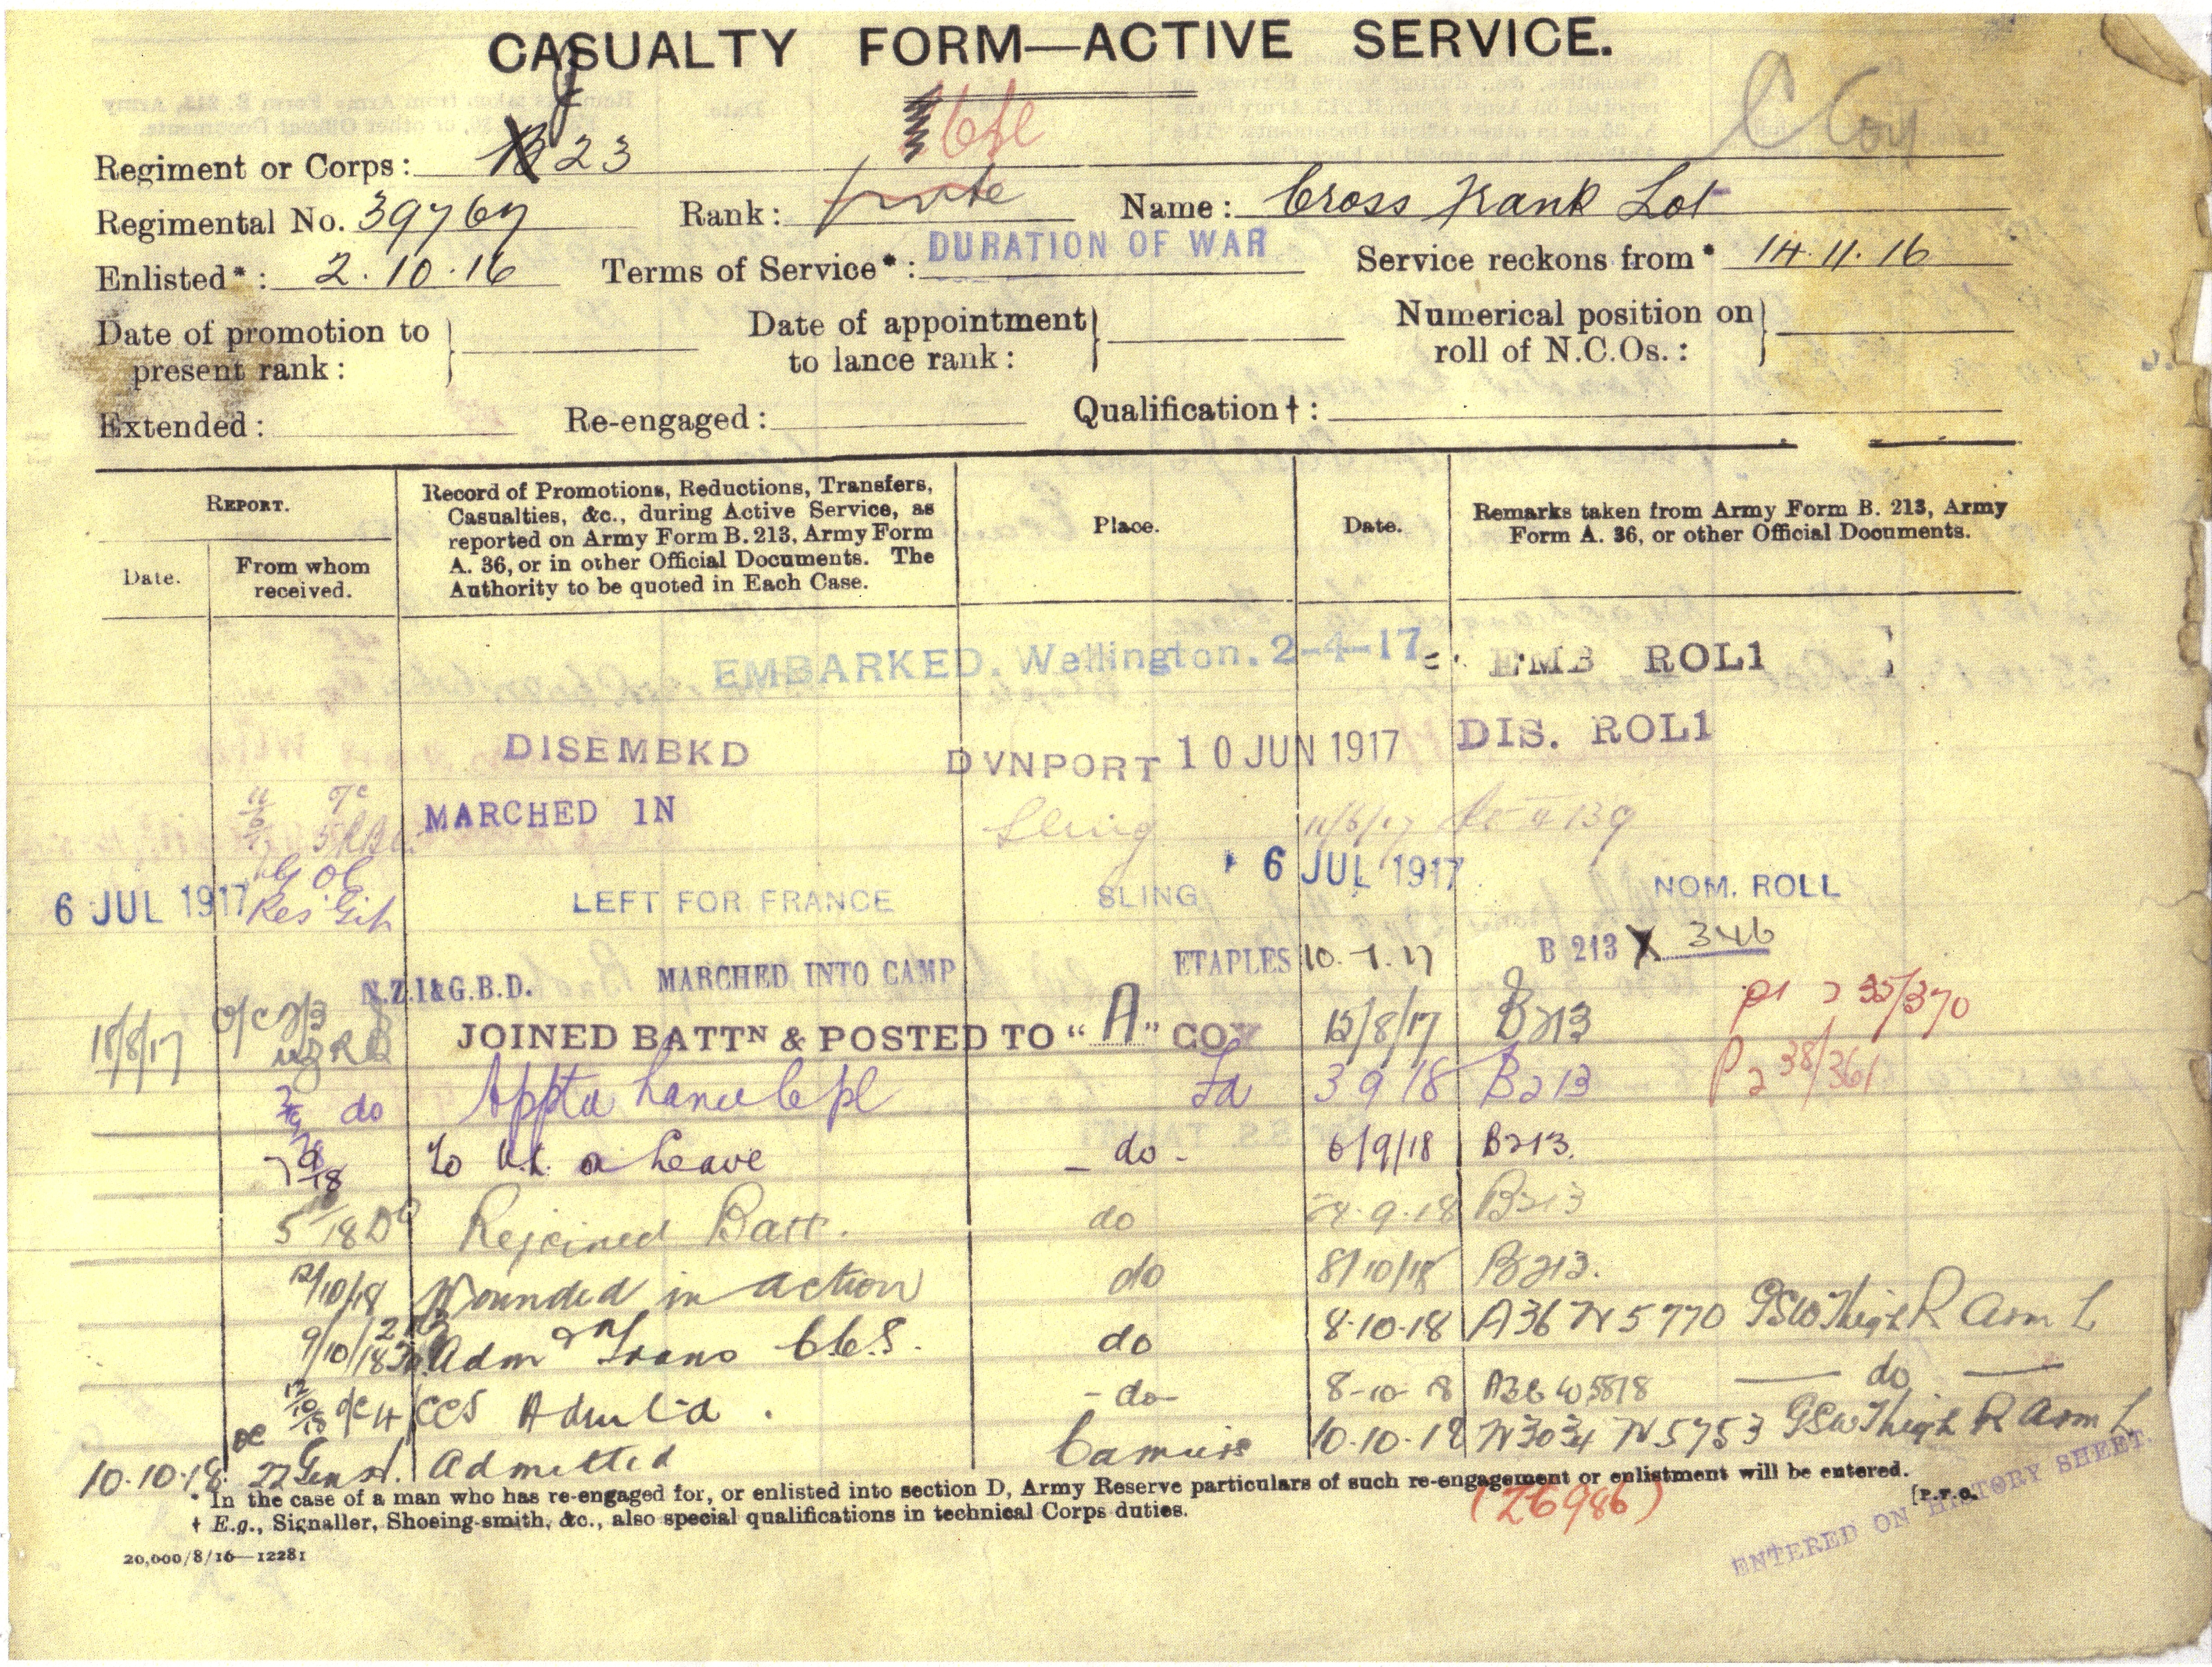 CASUALTY FORM—ACTIVE SERVICE.
C Coy
Regiment or Corps: J 23
Regimental No. 39767 Rank: Name: Cross Frank Lot
Enlisted*: 2.10.16 Terms of Service*: DURATION OF WAR Service reckons from* 14.11.16
Date of promotion to present rank: Date of appointment to lance rank: Numerical position on roll of N.C.Os.:
Extended: Re-engaged: Qualification†:
REPORT. Record of Promotions, Reductions, Transfers, Casualties, &c., during Active Service, as reported on Army Form B. 213, Army Form A. 36, or in other Official Documents. The Authority to be quoted in Each Case. Place. Date. Remarks taken from Army Form B. 213, Army Form A. 36, or other Official Documents.
Date. From whom received.
EMBARKED. Wellington. 2-4-17 EMB ROL1
DISEMBKD DVNPORT 10 JUN 1917 DIS. ROL1
MARCHED 1N Sling 11/6/17
6 JUL 1917 LEFT FOR FRANCE SLING 6 JUL 1917 NOM. ROLL
N.Z.I&G.B.D. MARCHED INTO CAMP ETAPLES 10.7.17 B 213 X 346
18/8/17 JOINED BATTN & POSTED TO "A" COY B213 35/370
do Apptd Lance Cpl Fd 3 9 18 B213 P2 38/361
7 9/18 To U.K. on Leave - do - 6/9/18 B213.
5 10/18 Do Rejoined Batt. do 24.9.18 B213
12/10/18 Wounded in action do 8/10/18 B213.
9/10/18 Adm & Trans CCS. do 8.10.18 A36 N5770 GSW Thigh R Arm L
12/10/18 OC 4 CCS Admitted. -do- 8-10-18 A36 W5818 — do —
10.10.18 OC 22 Gen H. Admitted Camiers 10.10.18 W3034 N5753 GSW Thigh R Arm L
* In the case of a man who has re-engaged for, or enlisted into section D, Army Reserve particulars of such re-engagement or enlistment will be entered.
(26986) [P.T.O.
† E.g., Signaller, Shoeing-smith, &c., also special qualifications in technical Corps duties.
ENTERED ON HISTORY SHEET.
20,000/8/16—12281